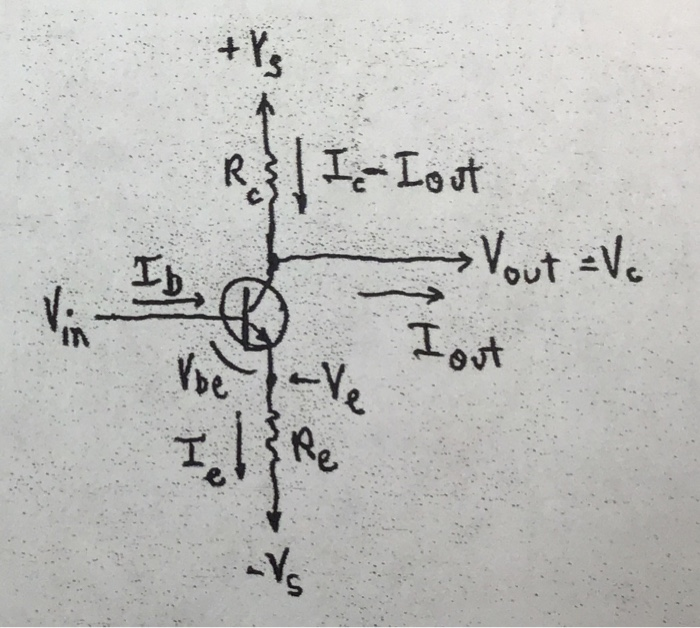 +Vs
Rc
Ic-Iout
Ib
Vout =Vc
Vin
Iout
Vbe
Ve
Ie
Re
-Vs